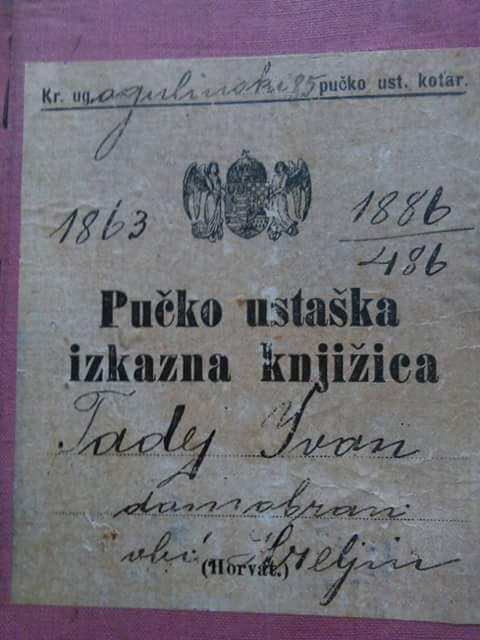 Kr. ug. ogulinski 85 pučko ust. kotar.
1863
1886
486
Pučko ustaška
izkazna knjižica
Tadej Ivan
domobran
(Horvat.)